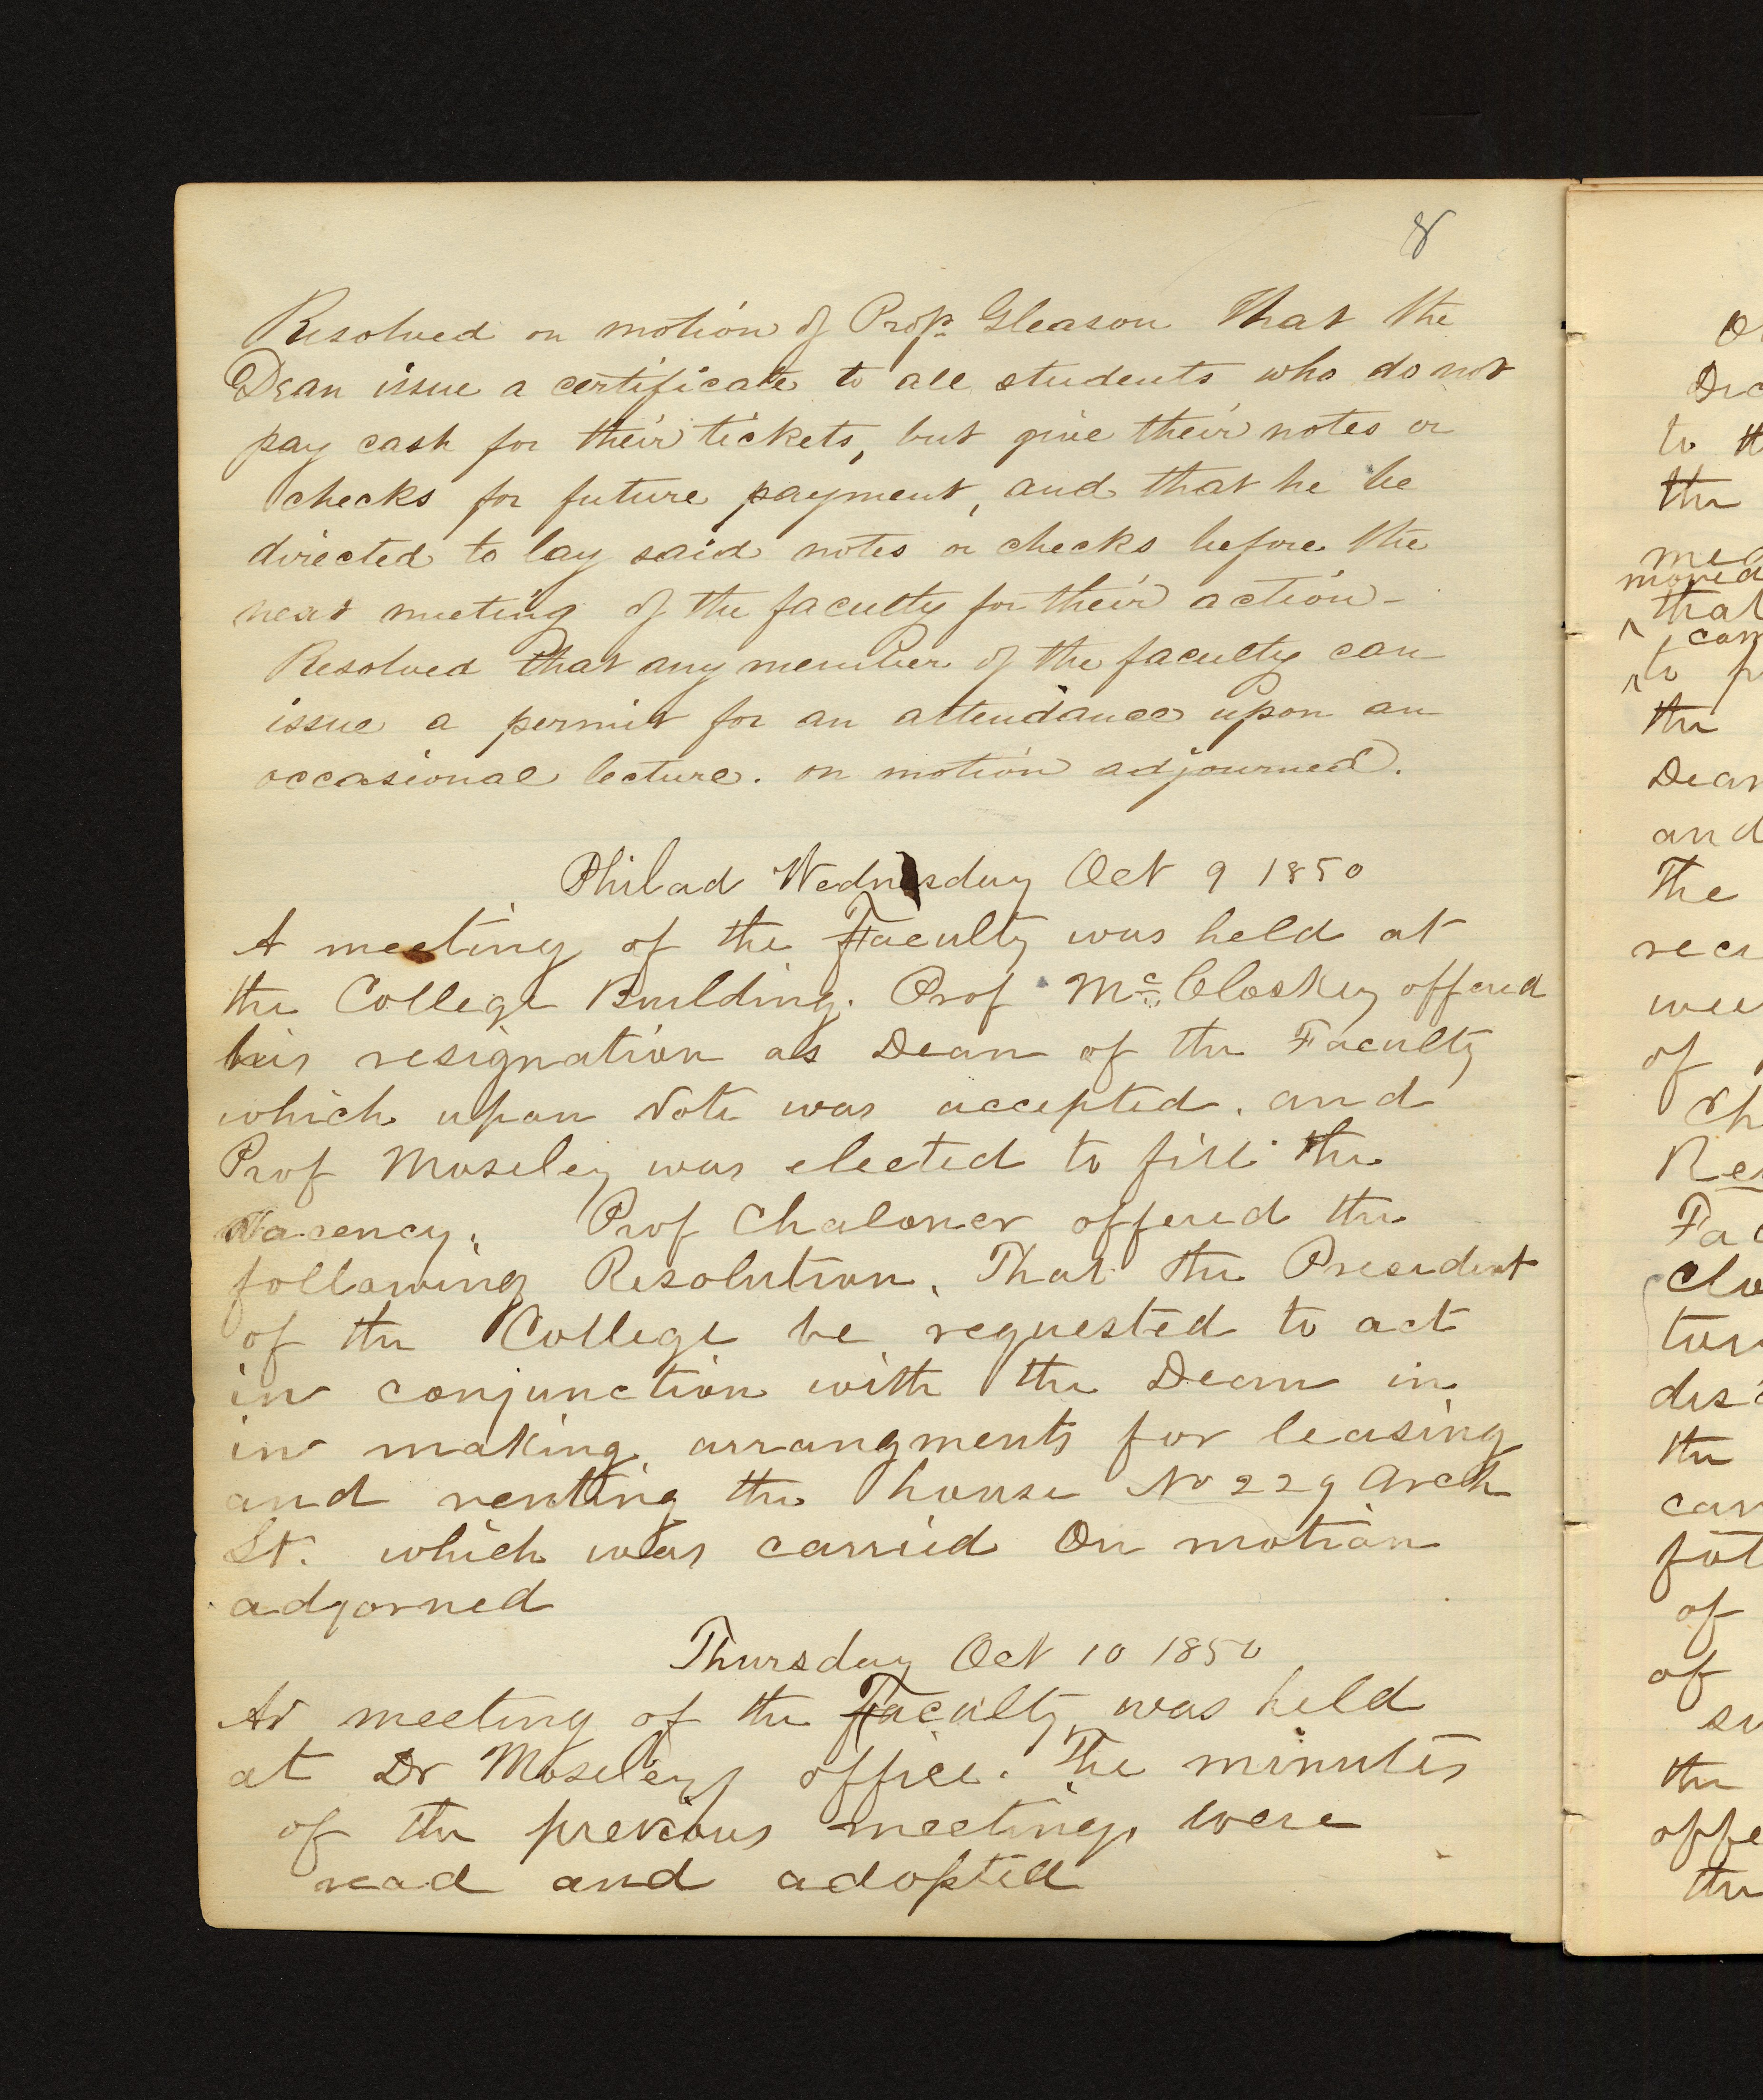 8
Resolved on motion of Profr. Gleason That the
Dean issue a certificate to all students who do not
pay cash for their tickets, but give their notes or
checks for future payment, and that he be
directed to lay said notes or checks before the
next meeting of the faculty for their action -
Resolved that any member of the faculty can
issue a permit for an attendance upon an
occasional lecture. on motion adjourned.
Philad Wednesday Oct 9 1850
A meeting of the Faculty was held at
the College Building. Prof Mc Closkey offered
his resignation as Dean of the Faculty
which upon Vote was accepted. and
Prof Moseley was elected to fill the
Vacency. Prof Chaloner offered the
following Resolution. That the President
of the College be requested to act
in conjunction with the Dean in
in making arrangments for leasing
and renting the house No 229 Arch
St. which was carried On motion
adjorned
Thursday Oct 10 1850
At meeting of the Faculty was held
at Dr Moseleys office. The minutes
of the previous meeting were
read and adopted
to
the
that
to
the
Dean
and
The
of
the
of
of
the
the